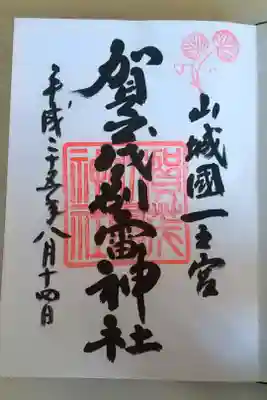 山城國一之宮
賀茂別雷神社
平成二十五年八月十四日